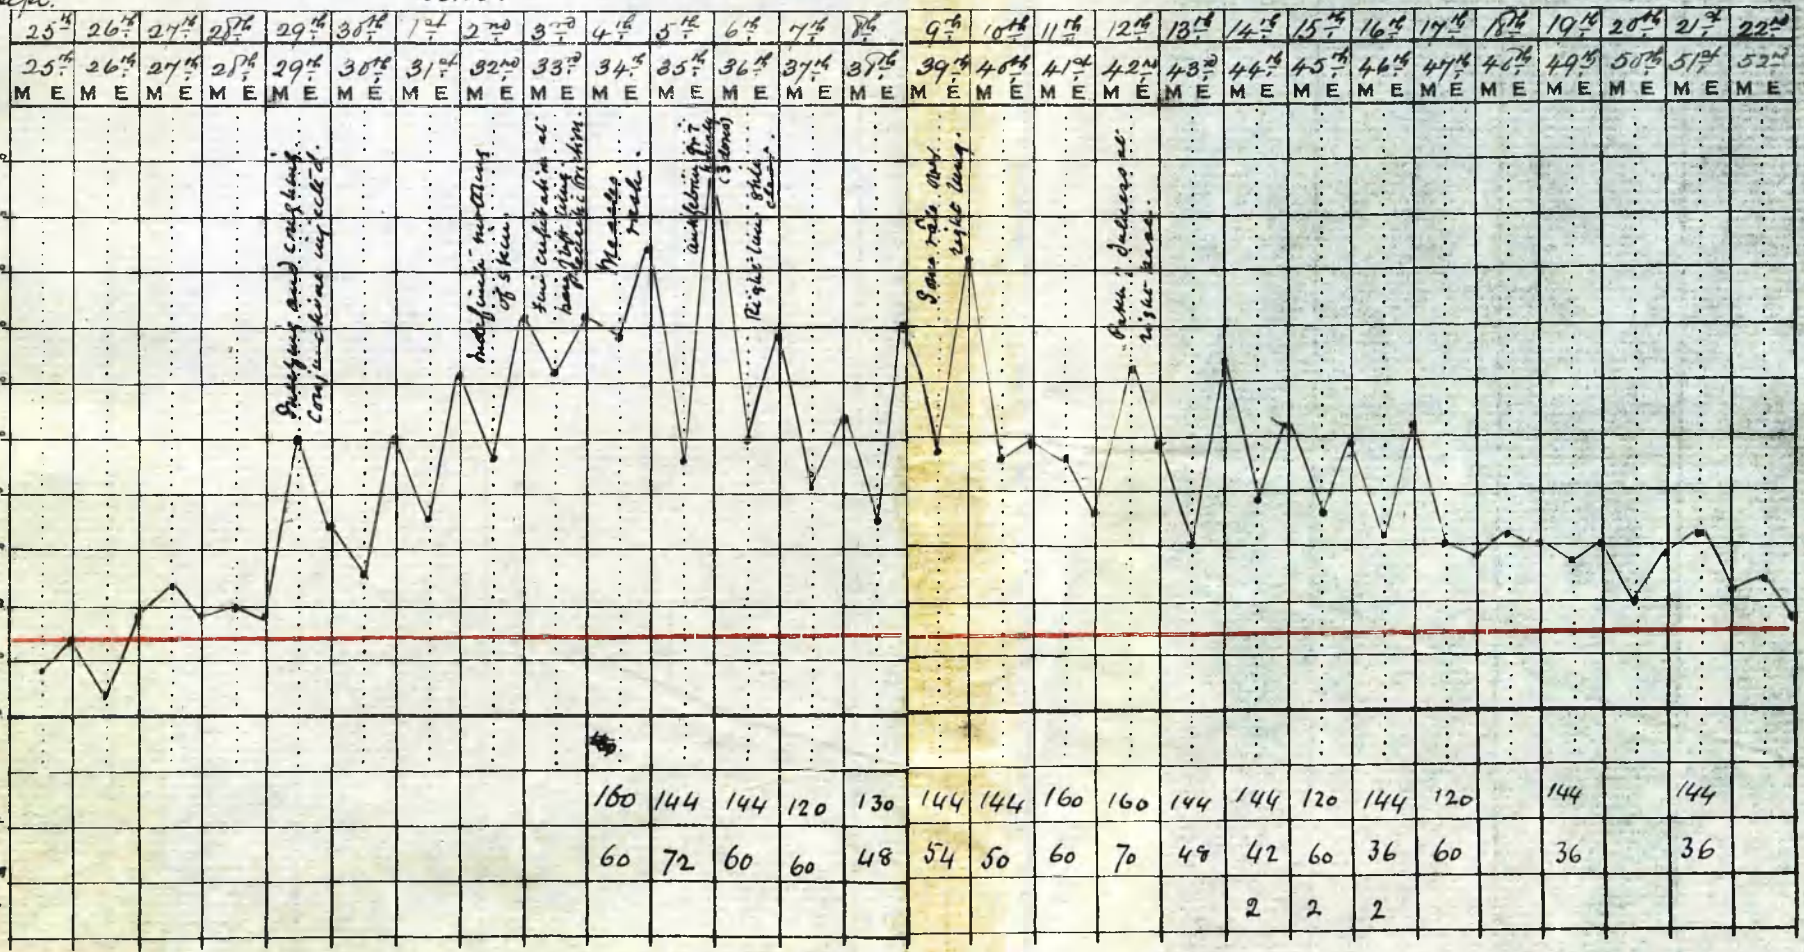 Sept.
25th 26th 27th 28th 29th 30th 1st 2nd 3rd 4th 5th 6th 7th 8th 9th 10th 11th 12th 13th 14th 15th 16th 17th 18th 19th 20th 21st 22nd
25th 26th 27th 28th 29th 30th 31st 32nd 33rd 34th 35th 36th 37th 38th 39th 40th 41st 42nd 43rd 44th 45th 46th 47th 48th 49th 50th 51st 52nd
M E M E M E M E M E M E M E M E M E M E M E M E M E M E M E M E M E M E M E M E M E M E M E M E M E M E M E M E
and coughing.
Conjunctivae injected.
Indefinite mottling
of skin.
Fine crepitation at
Measles
rash.
(3 doses)
Right
Some rale over
right lung.
dullness at
right base.
160 144 144 120 130 144 144 160 160 144 144 120 144 120 144 144
60 72 60 60 48 54 50 60 70 48 42 60 36 60 36 36
2 2 2